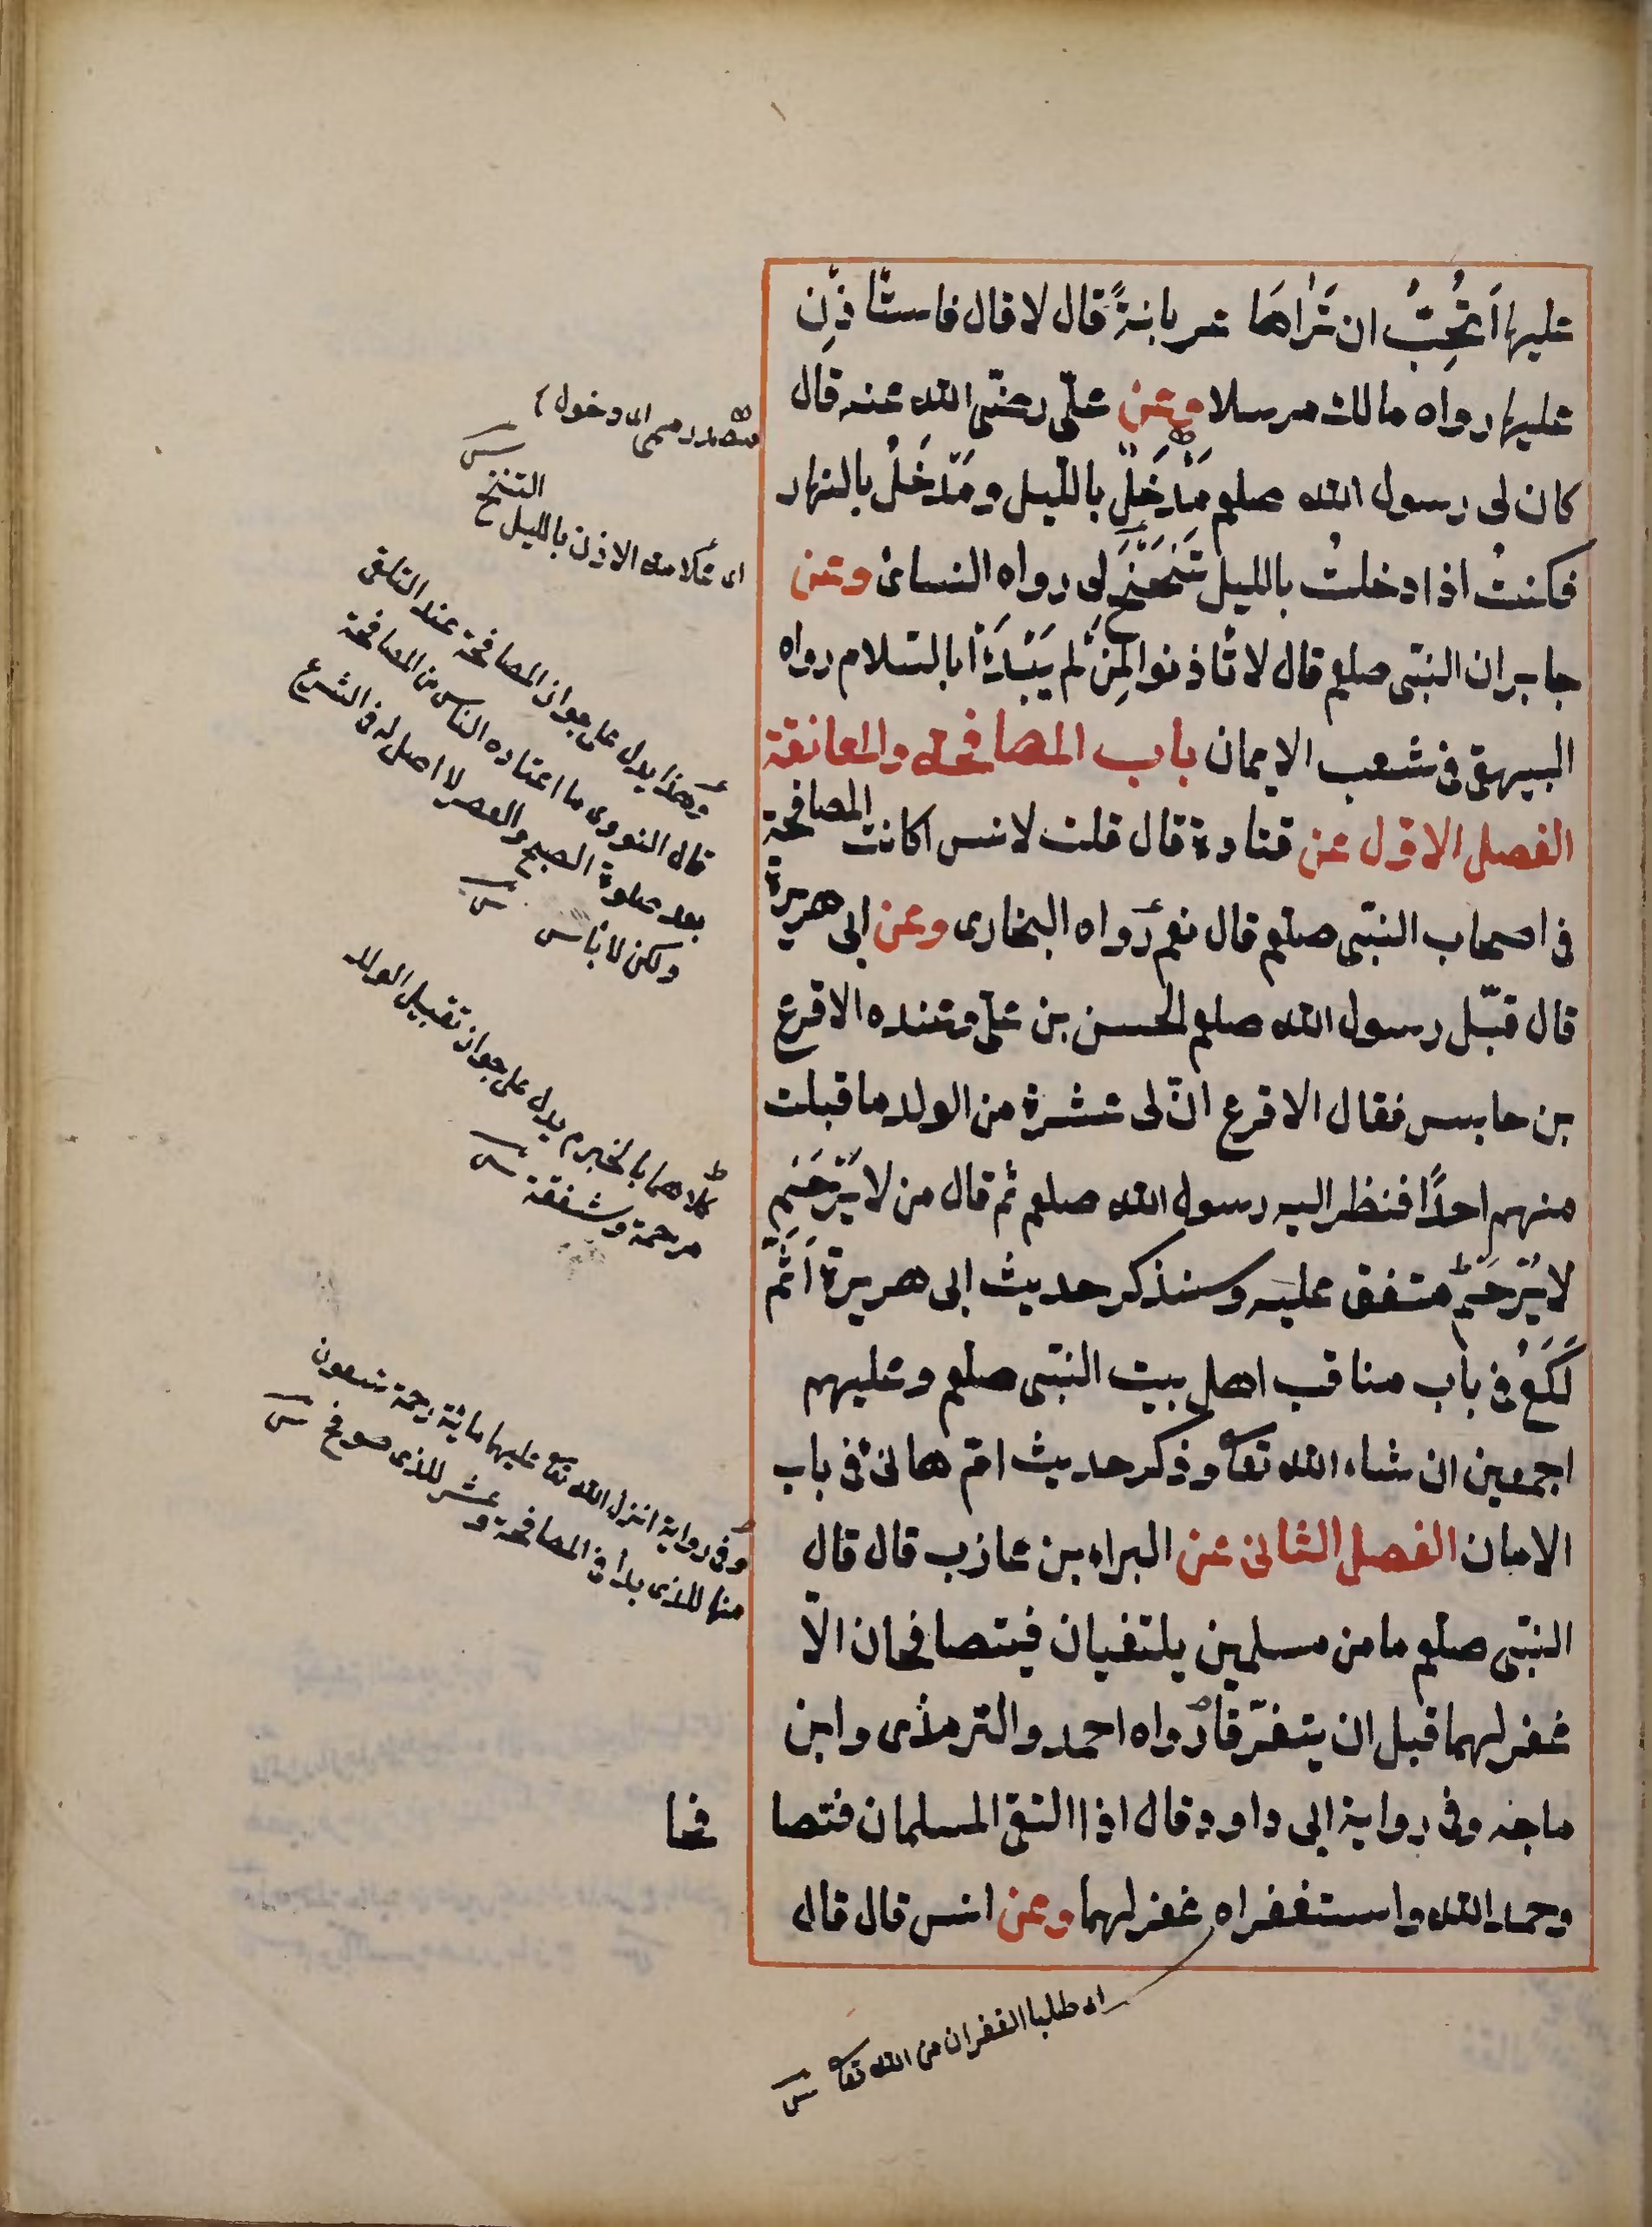 عليها اَتُحِبُّ ان تَرٰاهَا عريانةً قال لا قال فاستأذِن
عليها رواه مالك مرسلا وعن علىّ رضى الله عنه قال
كان لى رسول الله صلعم مَدْخَلٌ بالليل ومَدْخَلٌ بالنهار
فكنتُ اذا دخلتُ بالليل تَنَحْنَحَ لى رواه النسائ وعن
جابر ان النبى صلعم قال لا تأذنوا لِمَنْ لم يَبْدَأْ بالسلام رواه
البيهقى فى شعب الايمان باب المصافحة والمعانقة
الفصل الاول عن قتادة قال قلت لانس اكانت المصافحة
فى اصحاب النبى صلعم قال نعم رواه البخارى وعن ابى هريرة
قال قبّل رسول الله صلعم الحسن بن على وعنده الاقرع
بن حابس فقال الاقرع انّ لى عشرة من الولد ما قبلت
منهم احدًا فنظر اليه رسول الله صلعم ثم قال من لا يَرْحَمْ
لا يُرْحَمْ متفق عليه وسنذكر حديث ابى هريرة اَثَمَّ
لُكَعُ فى باب مناقب اهل بيت النبى صلعم وعليهم
اجمعين ان شاء الله تعا وذكر حديث امّ هانئ فى باب
الامان الفصل الثانى عن البراء بن عازب قال قال
النبى صلعم ما من مسلمين يلتقيان فيتصافحان الّا
غفر لهما قبل ان يتفرّقا رواه احمد والترمذى وابن
ماجه وفى رواية ابى داود قال اذا التقى المسلمان فتصا فحا
وحمدا الله واستغفراه غفر لهما وعن انس قال قال
مصدر ميمى اى دخول
التنحنح
اى علامة الاذن بالليل
وهذا يدل على جواز المصافحة عند التلقى
قال النووى ما اعتاده الناس من المصافحة
بعد صلوة الصبح والعصر لا اصل له فى الشرع
ولكن لا بأس
كلاهما بالجزم يدل على جواز تقبيل الولد
مرحمة وشفقة
وفى رواية انزل الله تعا عليها مائة رحمة تسعون
منها للذى بدأ فى المصافحة وعشر للذى صوفح
اى طلبا الغفران من الله تعا